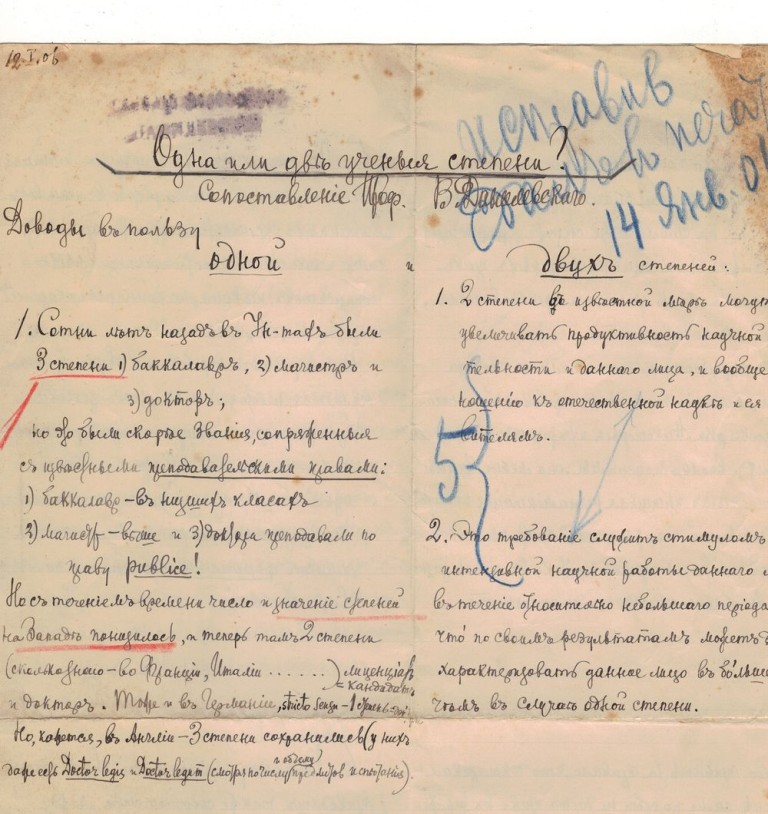 12.I.06
исправив
печат
14 янв. 0
Одна или двѣ ученыя степени?
Сопоставленіе Проф. В. Данилевскаго.
Доводы въ пользу
одной и двухъ степеней:
1. Сотни лѣтъ назадъ въ Ун-тахъ были
3 степени 1) баккалавръ, 2) магистръ и
3) докторъ;
но это были скорѣе званія, сопряженныя
съ извѣстными преподавательскими правами:
1) баккалавр – въ низшихъ класахъ
2) магистр – выше и 3) доктора преподавали по
праву publice!
Но съ теченіемъ времени число и значеніе степеней
на Западѣ понизилось, и теперь тамъ 2 степени
(сколько много – во Франціи, Италіи ......) лиценціат
= кандидатъ
и доктор. Тоже и въ Германіи, stricto sensu – 1
Но, кажется, въ Англіи – 3 степени сохранились (у них
даже есть Doctor legis и Doctor legum (смотря по числу и объему предметов испытанія).
1. 2 степени въ извѣстной мѣрѣ могут
увеличивать продуктивность научной
тельности и даннаго лица, и вообще
ношенію къ отечественной наукѣ и ея
вителямъ.
5
2. Это требованіе служитъ стимуломъ
интензивной научной работы даннаго
въ теченіе относительно небольшаго періода
что по своимъ результатамъ можетъ
характеризовать данное лицо въ больш
чѣмъ въ случаѣ одной степени.